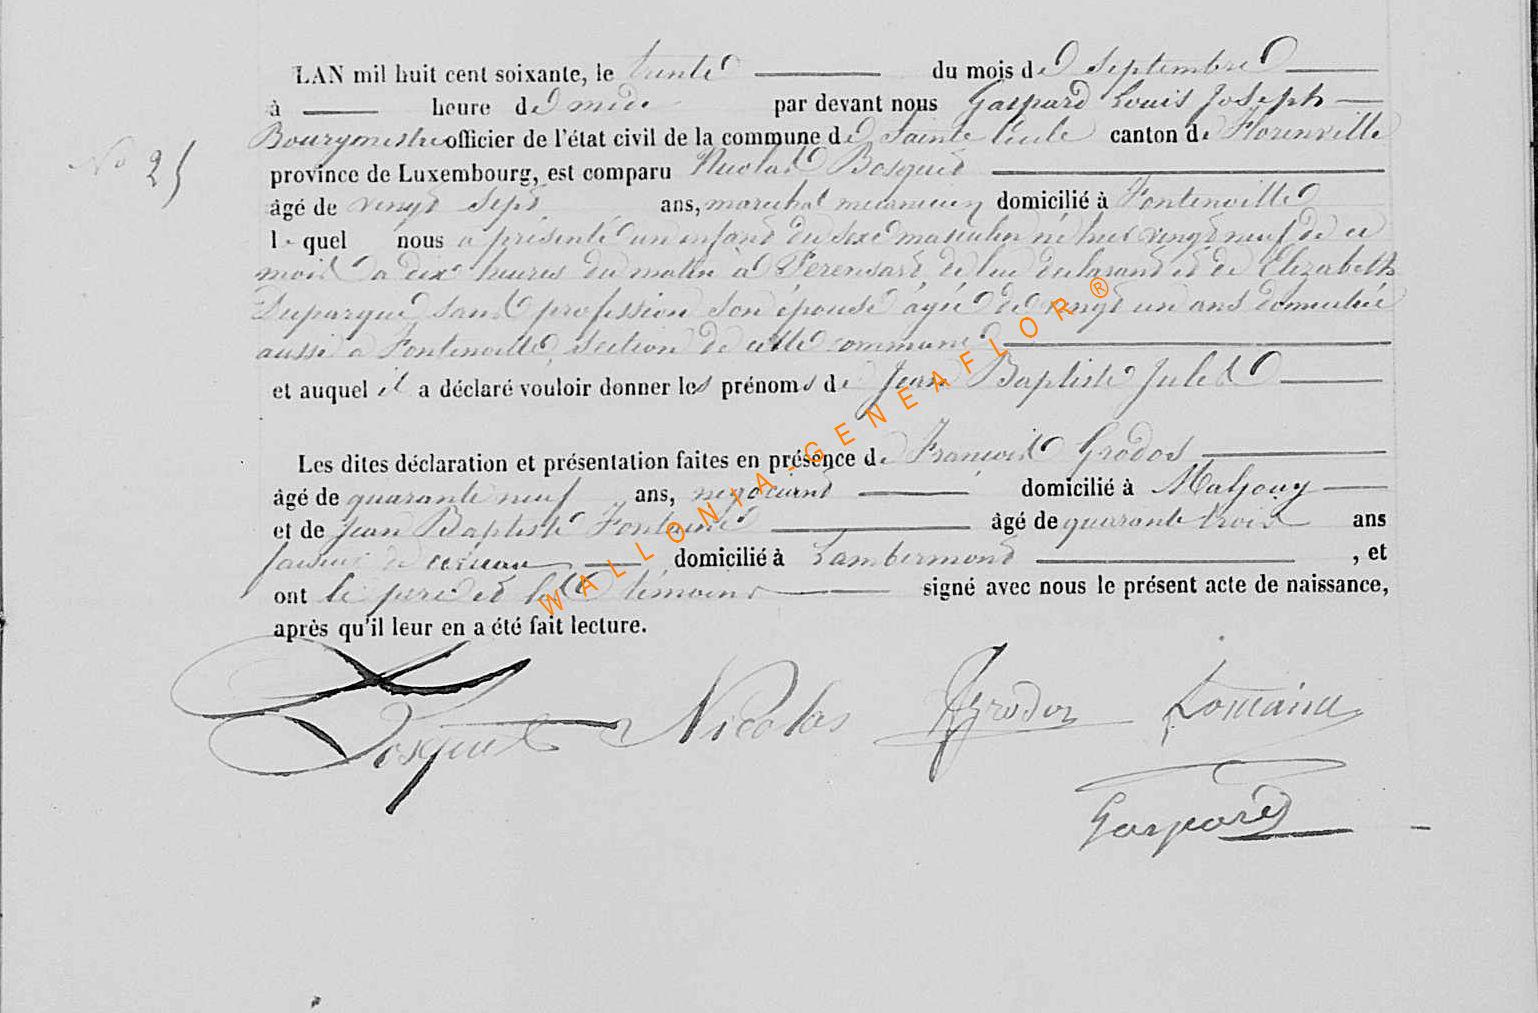 LAN mil huit cent soixante, le trente du mois de Septembre
à heure de midi par devant nous Gaspard Louis Joseph
Bourgmestre officier de l'état civil de la commune de Sainte Cécile canton de Florenville
N° 25
province de Luxembourg, est comparu Nicolas Bosquet
âgé de vingt sept ans, maréchal mécanicien domicilié à Fontenoille
lequel nous a présenté un enfant du sexe masculin né hier vingt neuf de ce
mois à dix heures du matin à de lui déclarant et de Elizabeth
Duparque sans profession son épouse âgée de vingt un ans domiciliée
aussi à Fontenoille section de cette commune
et auquel il a déclaré vouloir donner les prénoms de Jean Baptiste Jules
Les dites déclaration et présentation faites en présence de François Grodos
âgé de quarante neuf ans, négociant domicilié à
et de Jean Baptiste âgé de quarante trois ans
faiseur de domicilié à Lambermont , et
ont le père et les témoins signé avec nous le présent acte de naissance,
après qu'il leur en a été fait lecture.
Bosquet Nicolas Grodos
Gaspard
WALLONIA-GENEAFLOR ®